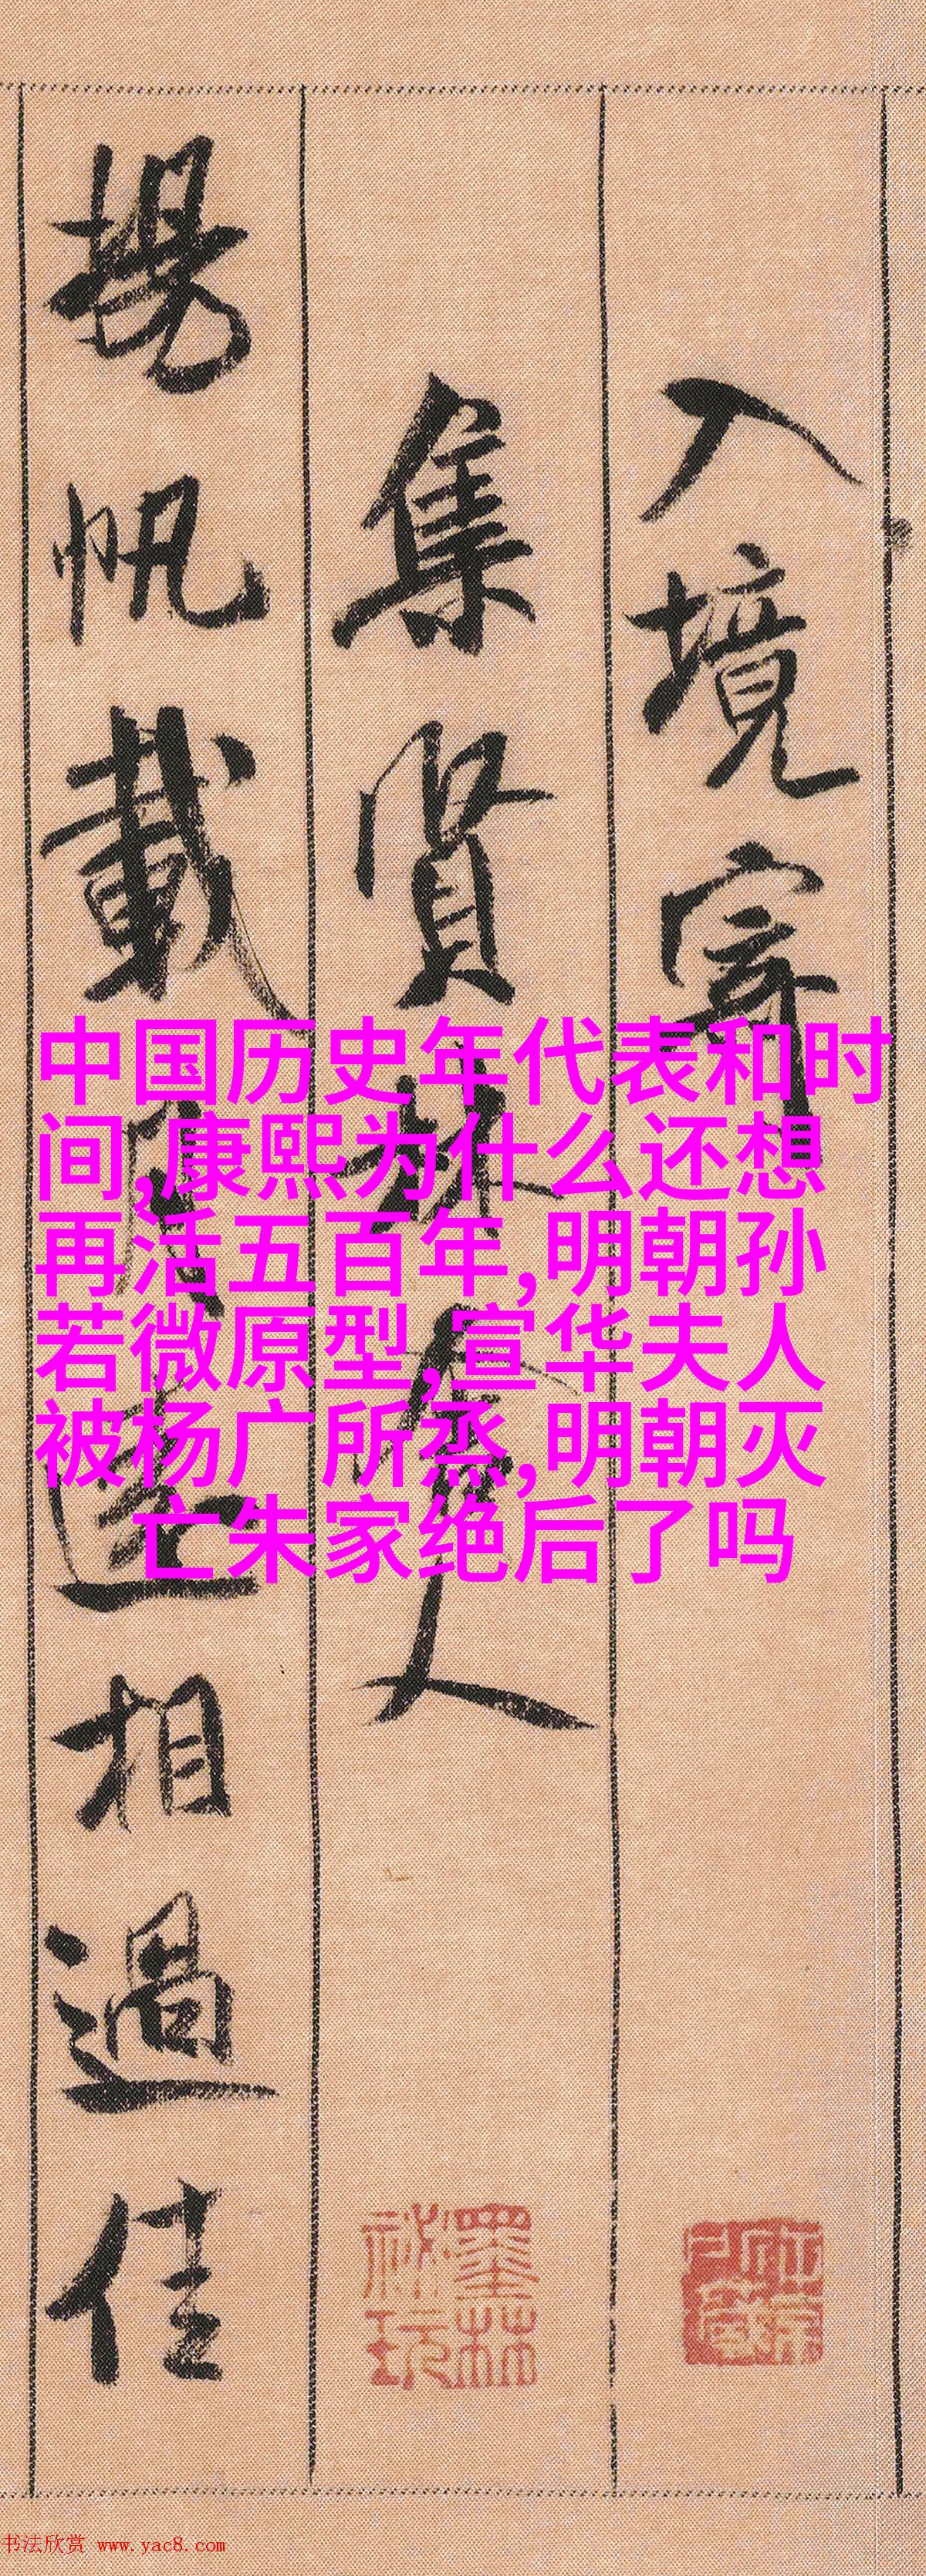 入境寄
集賢林舍人
揚帆載月遠相過佳
中国历史年代表和时
间,康熙为什么还想
再活五百年,明朝孙
若微原型,宣华夫人
被杨广所烝,明朝灭
亡朱家绝后了吗
墨林
秘玩
书法欣赏 www.yac8.com